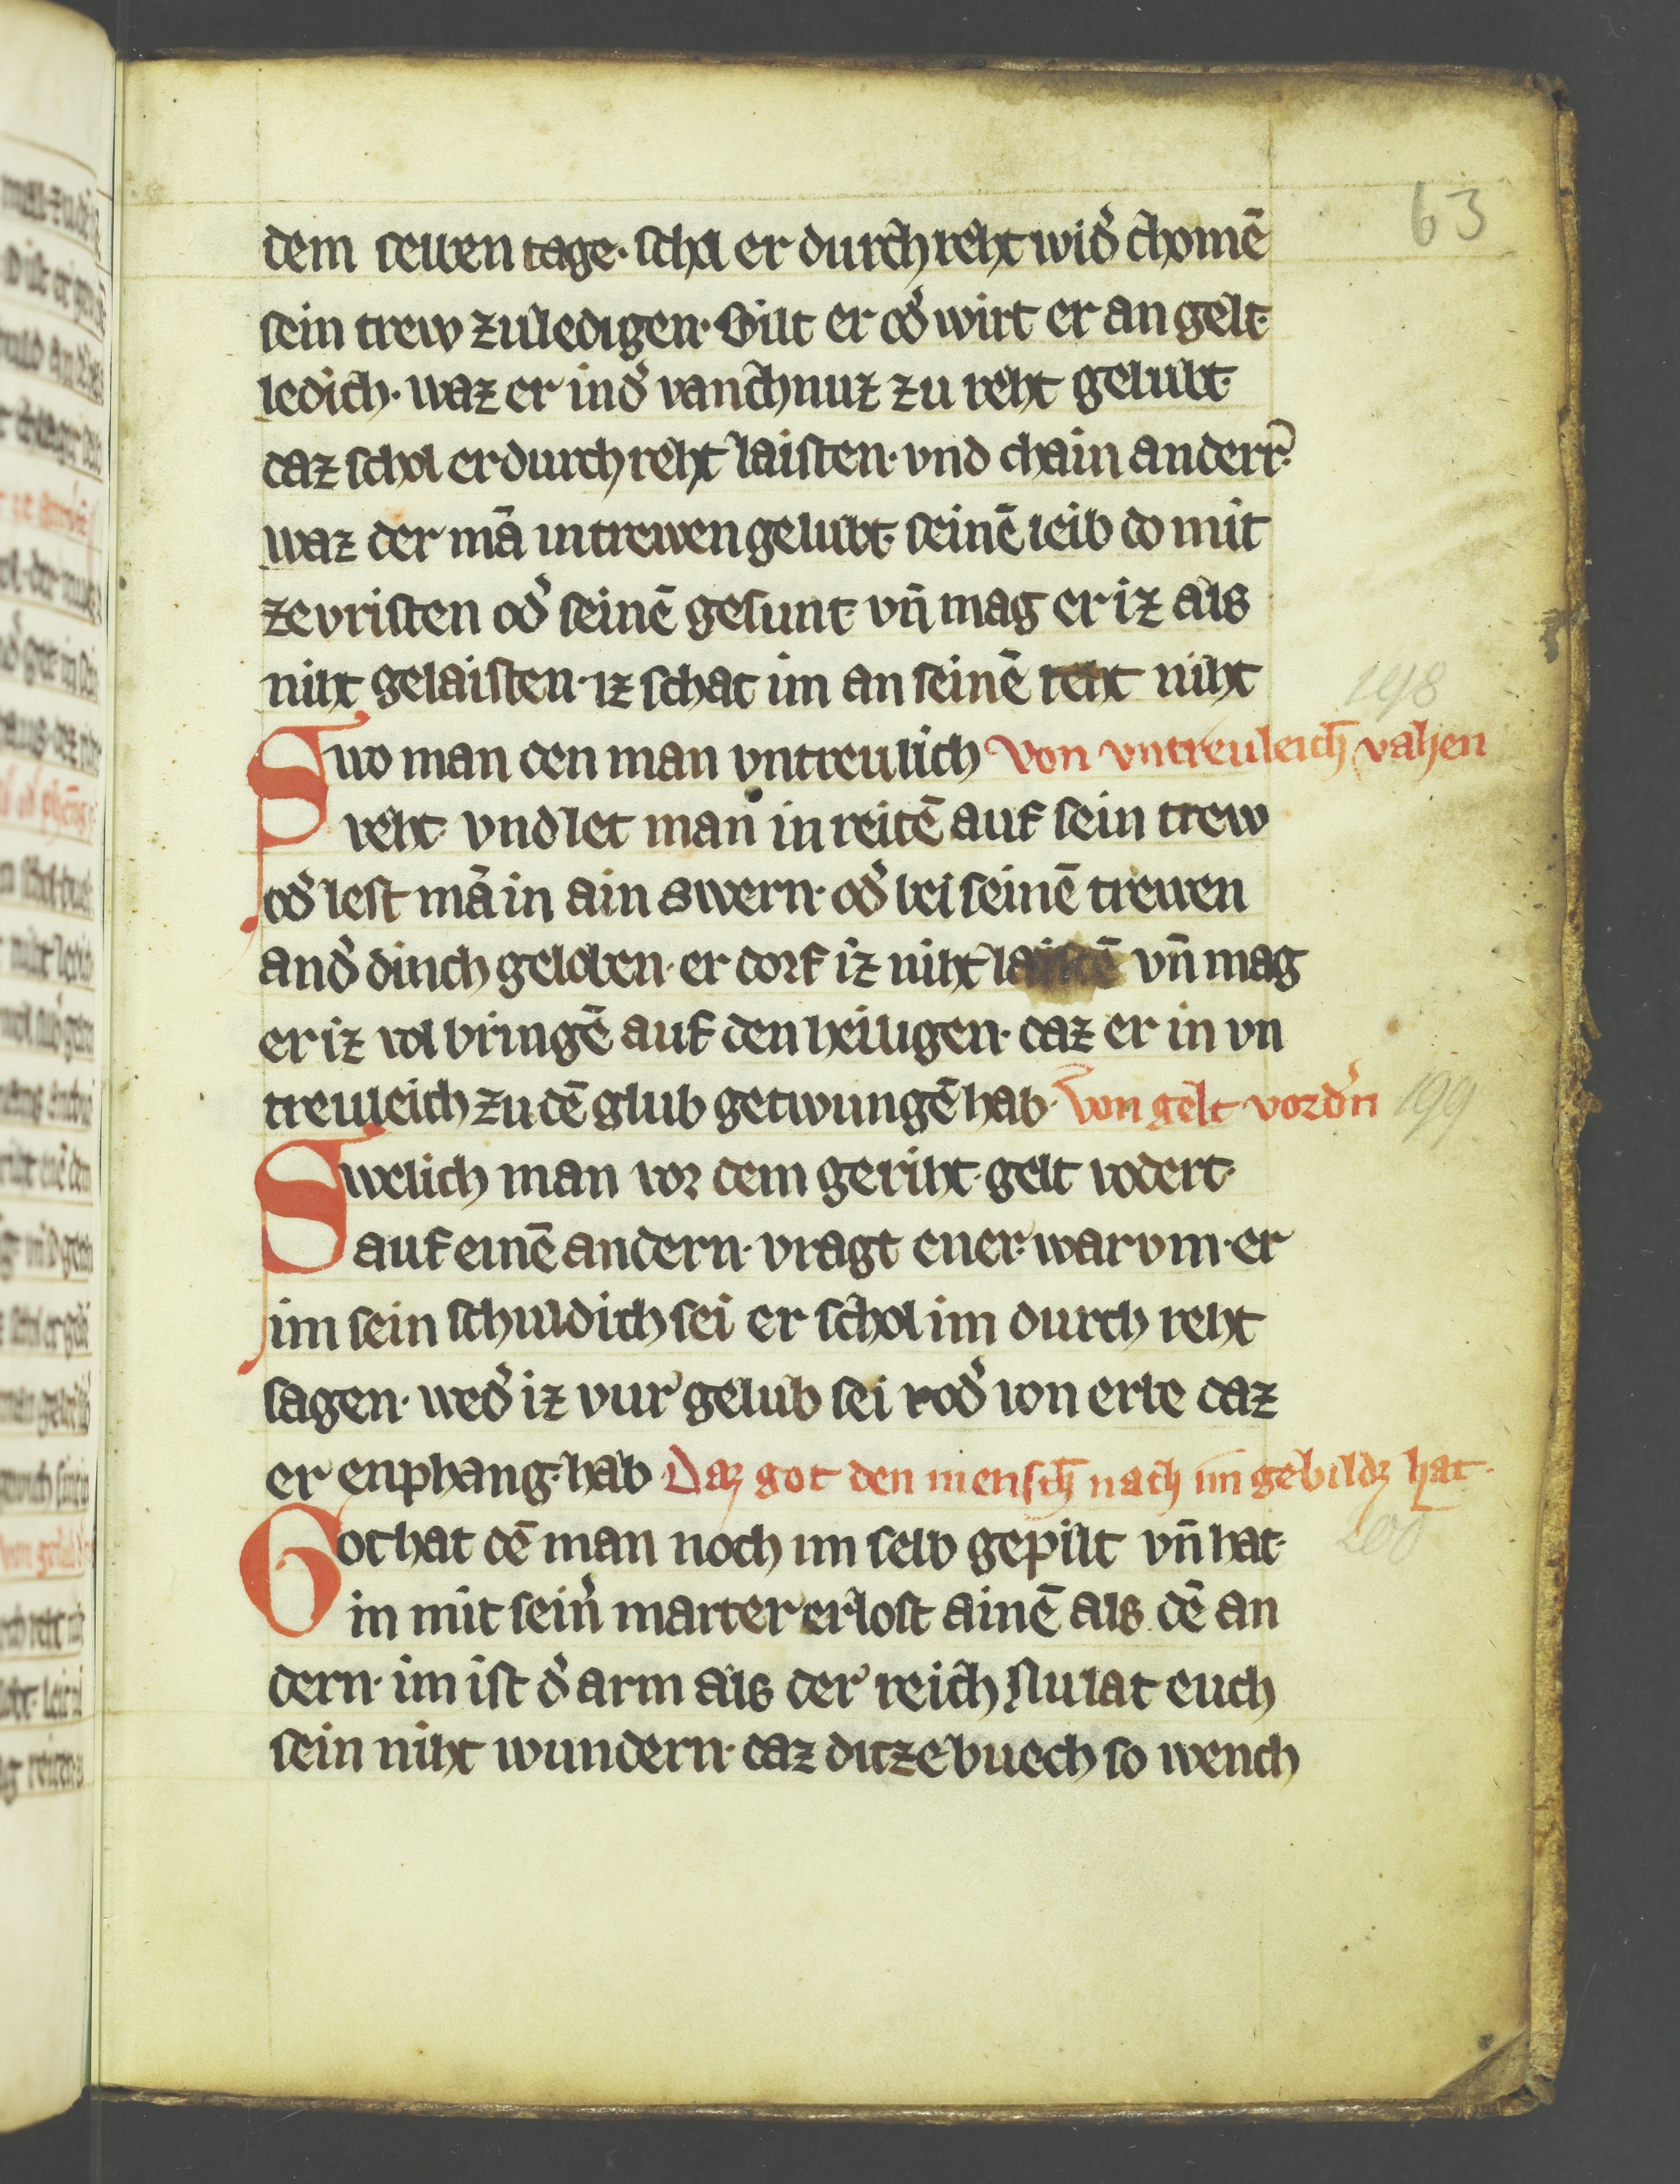 63
dem selben tage· schol er durch reht wid̾ chomē
sein trew zu ledigen· Gilt er od̾ wirt er an gelt·
ledich· waz er in d̾ vanchnuz zu reht gelubt·
daz schol er durch reht laisten· vnd chain anderr̾·
waz der mā intrewen gelubt· seinē leib do mit
ze vristen od̾ seinē gesunt· vn̄ mag er iz als
niht gelaisten· iz schat im an seinē reht niht
198
Swo man den man vntreulich Von vntreuleich̄ vahen
veht· vnd let man in reitē auf sein trew
od̾ lest mā in ain swern· od̾ bei seinē trewen
and̾ dinch geloben· er dorf iz niht laistē vn̄ mag
er iz vol bringē auf den heiligen· daz er in vn
treuleich zu dē glub getwungē hab· Von gelt vord̾n
199
Swelich man vor dem geriht· gelt vodert·
auf einē andern· vragt ener· warvm· er
im sein schuldich sei er schol im durch reht
sagen· wed̾ iz vur gelub sei v od̾ von erbe daz
er enphang· hab Daz got den mensch̄ nach im gebildz hat·
200
Got hat dē man noch im selb gepilt vn̄ hat·
in mit sein̾ marter erlost ainē als dē an
dern· im ist d̾ arm als der reich Nu lat euch
sein niht wundern· daz ditze buech so wench